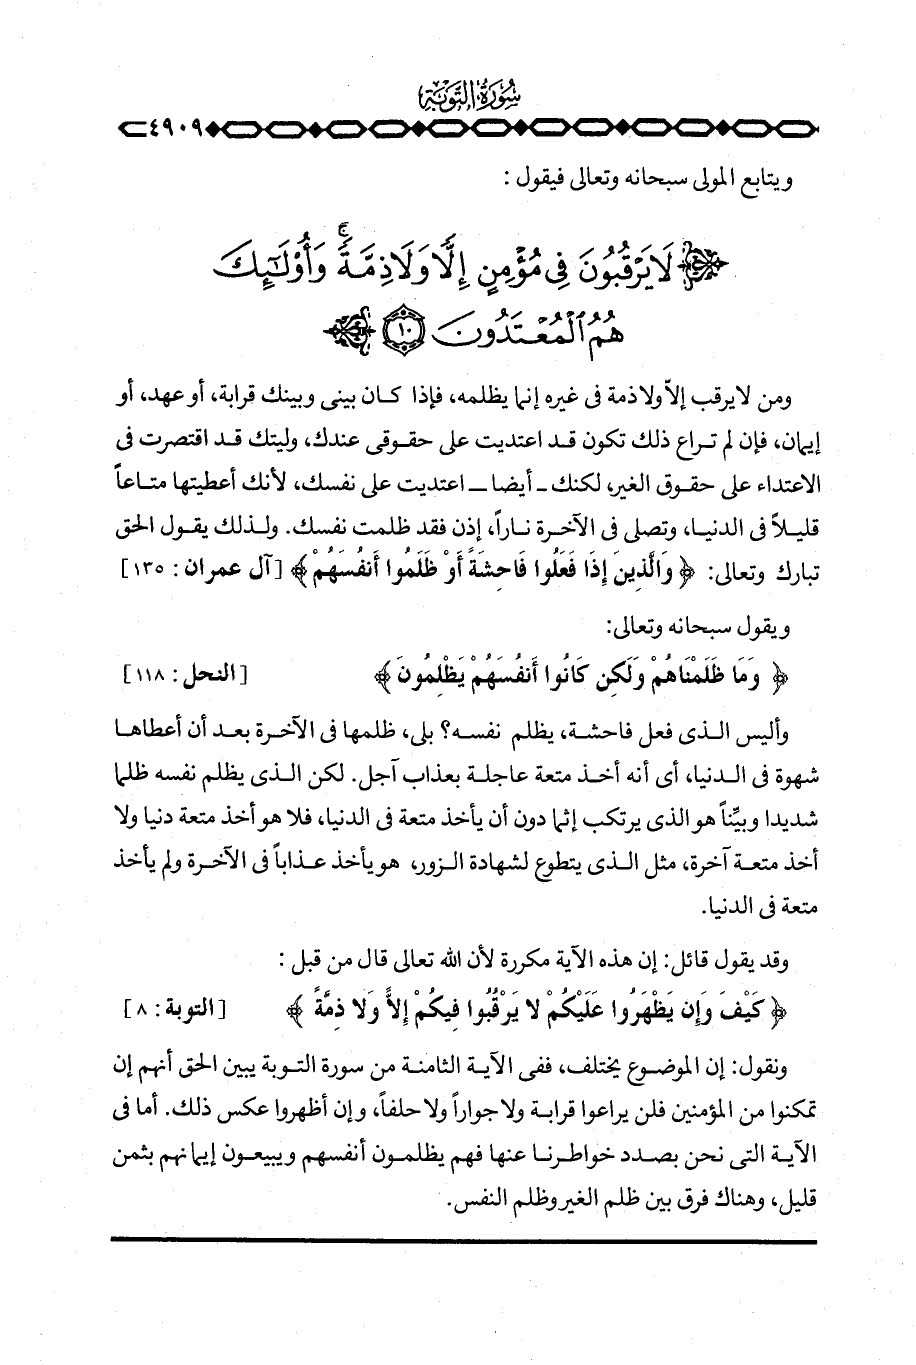 سُورَةُ التَّوْبَةِ
٤٩٠٩
ويتابع المولى سبحانه وتعالى فيقول :
لَا يَرْقُبُونَ فِي مُؤْمِنٍ إِلًّا وَلَا ذِمَّةً ۚ وَأُوْلَٰٓئِكَ
هُمُ ٱلْمُعْتَدُونَ ١٠
ومن لا يرقب إلاًّ ولا ذمة فى غيره إنما يظلمه، فإذا كان بينى وبينك قرابة، أو عهد، أو
إيمان، فإن لم تراع ذلك تكون قد اعتديت على حقوقى عندك، وليتك قد اقتصرت فى
الاعتداء على حقوق الغير، لكنك - أيضا - اعتديت على نفسك، لأنك أعطيتها متاعاً
قليلاً فى الدنيا، وتصلى فى الآخرة ناراً، إذن فقد ظلمت نفسك. ولذلك يقول الحق
تبارك وتعالى: ﴿ وَالَّذِينَ إِذَا فَعَلُوا فَاحِشَةً أَوْ ظَلَمُوا أَنفُسَهُمْ ﴾ [آل عمران : ١٣٥]
ويقول سبحانه وتعالى:
﴿ وَمَا ظَلَمْنَاهُمْ وَلَكِن كَانُوا أَنفُسَهُمْ يَظْلِمُونَ ﴾ [النحل : ١١٨]
وأليس الذى فعل فاحشة، يظلم نفسه؟ بلى، ظلمها فى الآخرة بعد أن أعطاها
شهوة فى الدنيا، أى أنه أخذ متعة عاجلة بعذاب آجل. لكن الذى يظلم نفسه ظلما
شديدا وبيِّناً هو الذى يرتكب إثما دون أن يأخذ متعة فى الدنيا، فلا هو أخذ متعة دنيا ولا
أخذ متعة آخرة، مثل الذى يتطوع لشهادة الزور، هو يأخذ عذاباً فى الآخرة ولم يأخذ
متعة فى الدنيا.
وقد يقول قائل: إن هذه الآية مكررة لأن الله تعالى قال من قبل :
﴿ كَيْفَ وَإِن يَظْهَرُوا عَلَيْكُمْ لا يَرْقُبُوا فِيكُمْ إِلاًّ وَلا ذِمَّةً ﴾ [التوبة : ٨]
ونقول: إن الموضوع يختلف، ففى الآية الثامنة من سورة التوبة يبين الحق أنهم إن
تمكنوا من المؤمنين فلن يراعوا قرابة ولا جواراً ولا حلفاً، وإن أظهروا عكس ذلك. أما فى
الآية التى نحن بصدد خواطرنا عنها فهم يظلمون أنفسهم ويبيعون إيمانهم بثمن
قليل، وهناك فرق بين ظلم الغير وظلم النفس.